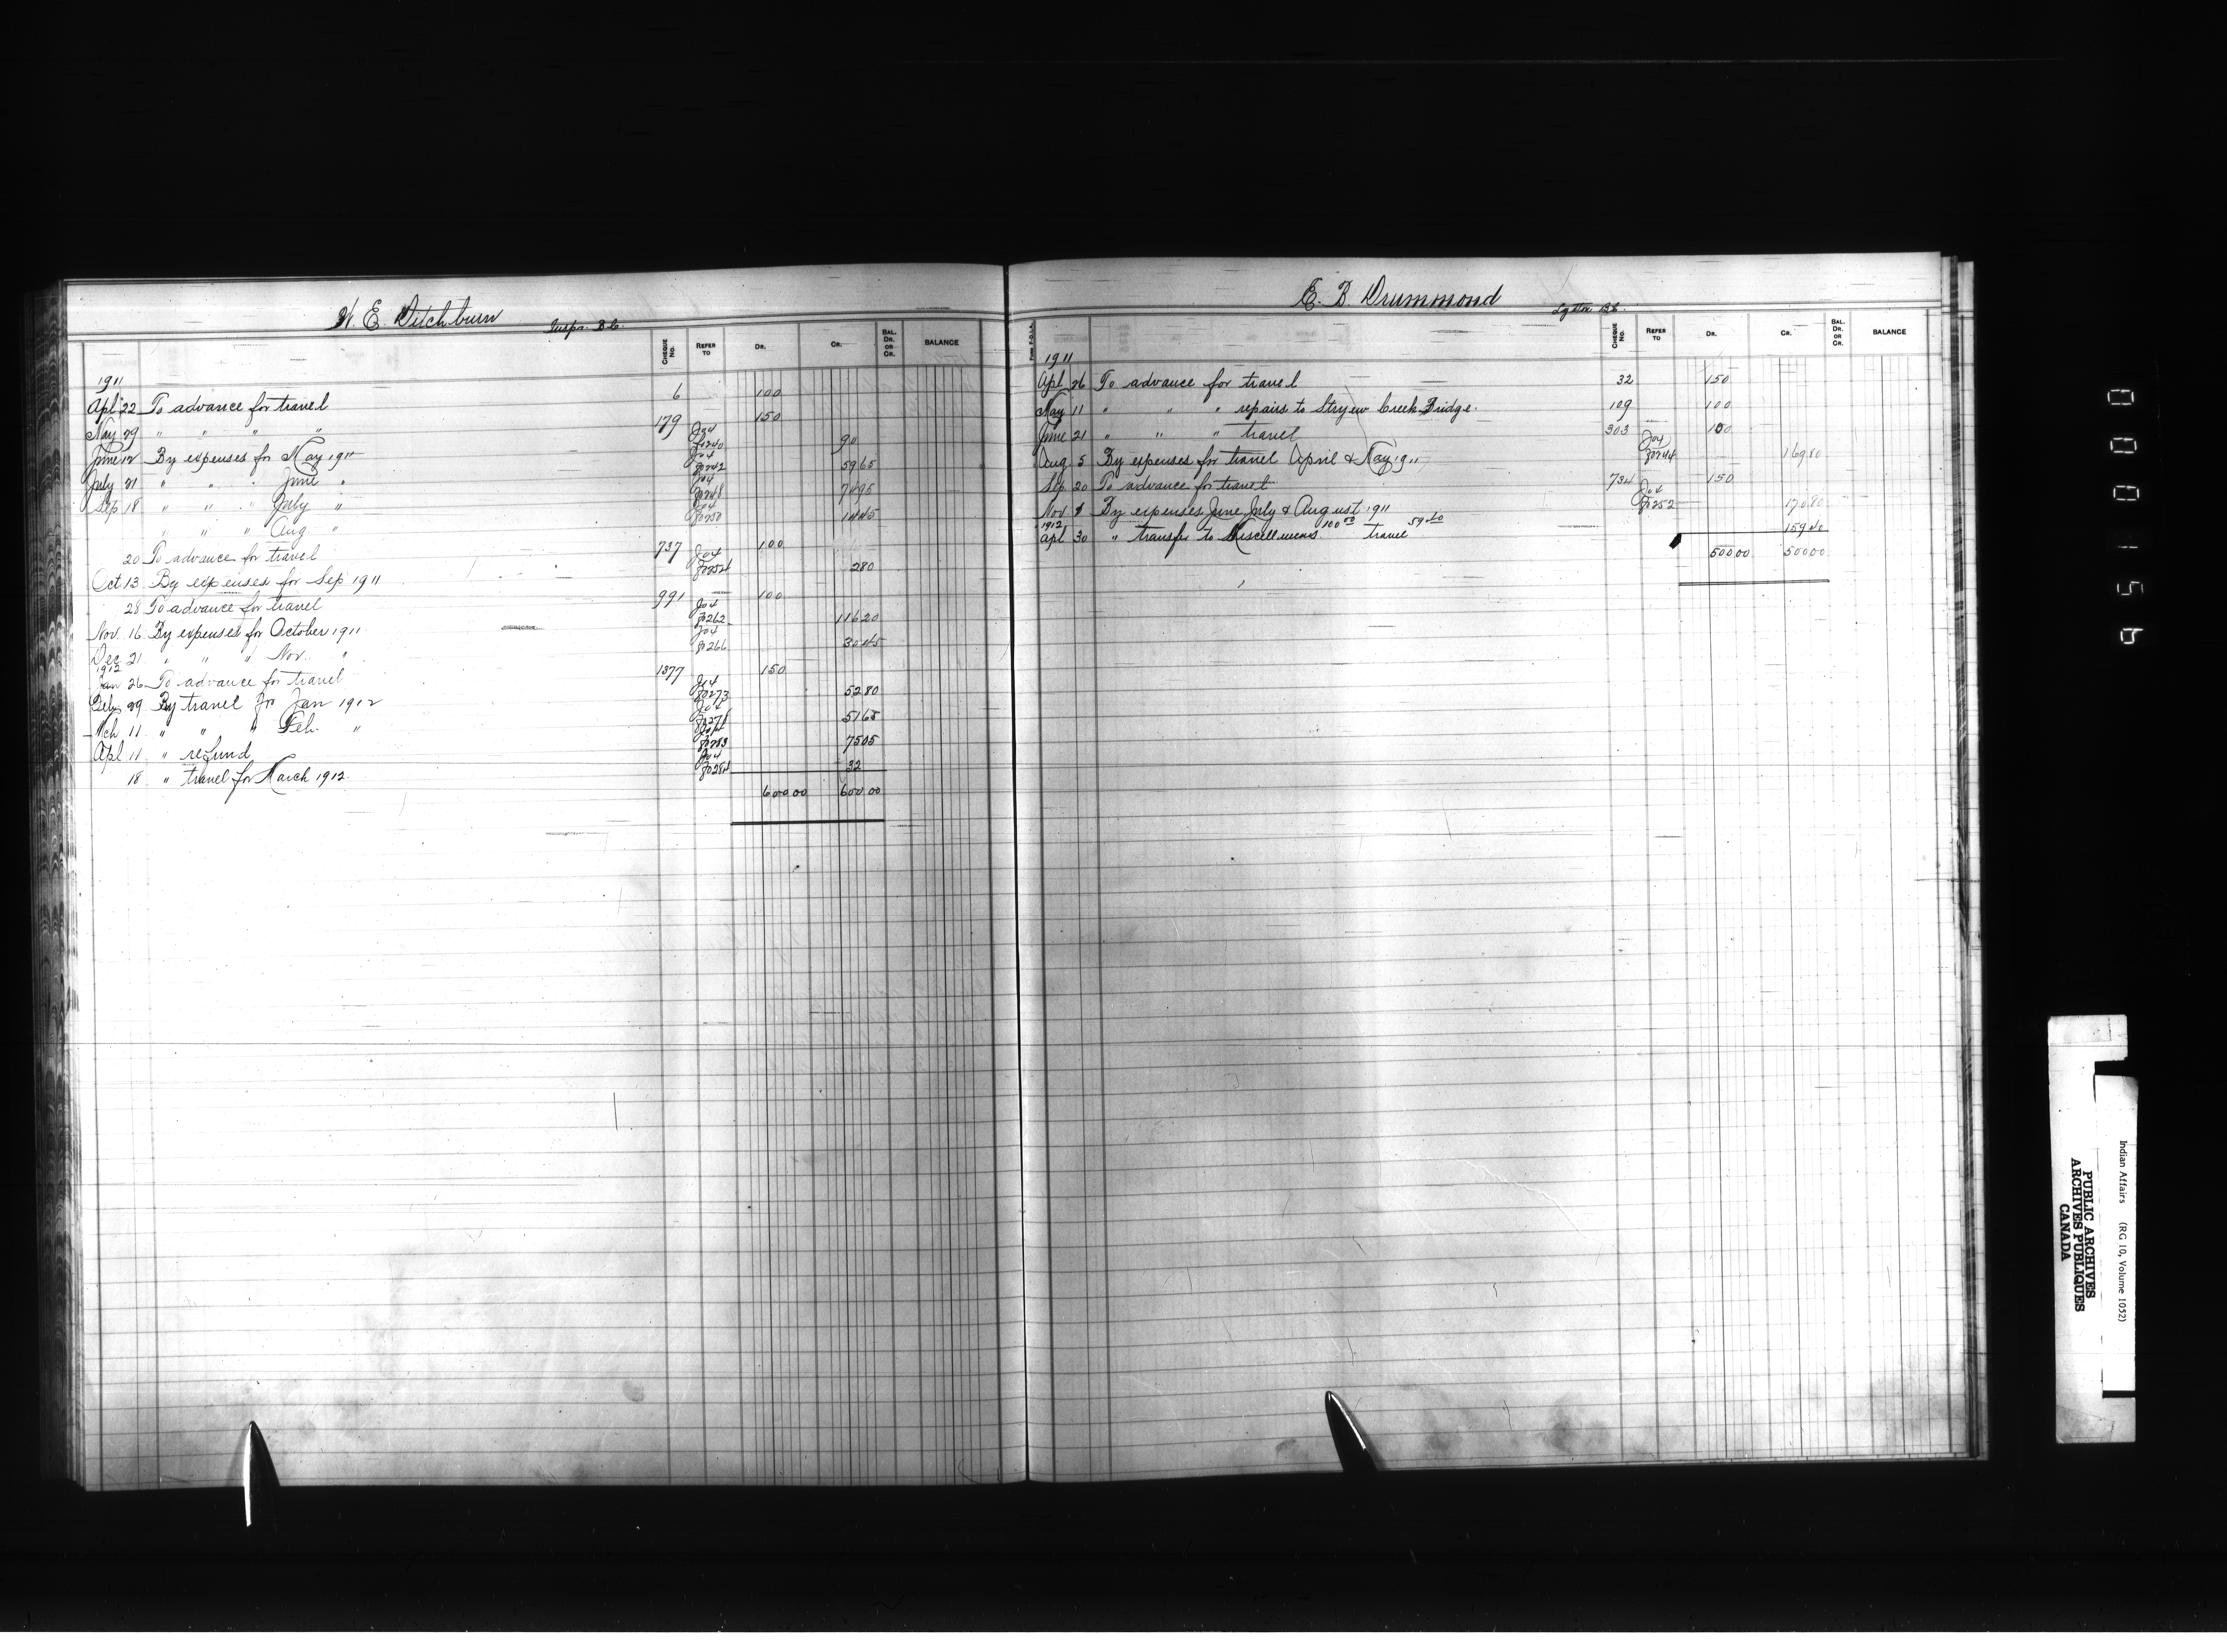 W. E. Ditchburn Inspr. B.C.
CHEQUE NO. REFER TO DR. CR. BAL. DR. OR CR. BALANCE
1911
Apl 22 To advance for travel 6 100
May 29 " " " " 179 150
June 12 By expenses for May 1911 Jo4 fo240 90
July 21 " " " June " Jo4 fo242 5965
Sep 18 " " " July " Jo4 fo248 7495
" " " Aug " Jo4 fo250 1445
20 To advance for travel 737 100
Oct 13 By expenses for Sep 1911 Jo4 280
28 To advance for travel 991 100
Nov. 16 By expenses for October 1911 Jo4 fo262 11620
Dec 21 " " " Nov. " Jo4 fo266 3045
1912
Jan 26 To advance for travel 1377 150
Feby 29 By travel for Jan 1912 Jo4 fo273 5280
Mch 11 " " " Feb. " Jo4 5165
Apl 11 " refund 7505
18 " travel for March 1912 Jo4 fo284 32
60000 60000
E. B. Drummond Lytton B.C.
CHEQUE NO. REFER TO DR. CR. BAL. DR. OR CR. BALANCE
1911
Apl 26 To advance for travel 32 150
May 11 " " " repairs to Creek Bridge. 109 100
June 21 " " " travel 303 100
Aug. 5 By expenses for travel April & May 1911 Jo4 fo244 16980
Sep 20 To advance for travel 734 150
Nov 1 By expenses June, July & August 1911 Jo4 fo252 17080
1912
Apl 30 " transfer to Miscellaneous 100 00 travel 59 40 15940
50000 50000
000154
Indian Affairs (RG 10, Volume 1052)
PUBLIC ARCHIVES
ARCHIVES PUBLIQUES
CANADA